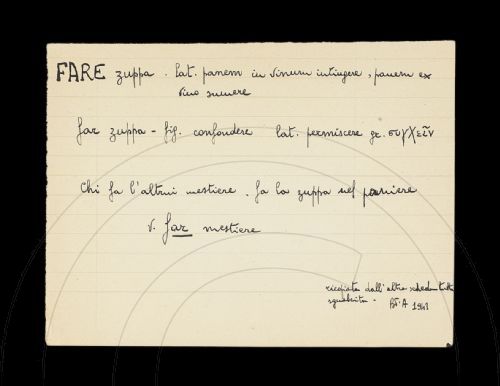 FARE zuppa . lat. panem in vinum intingere, panem ex
vino sumere
far zuppa - fig. confondere lat. permiscere gr. συγχεῖν
Chi fa l'altrui mestiere . fa la zuppa nel paniere
v. far mestiere
ricopiata dall'altra scheda tutta
sgualcita .